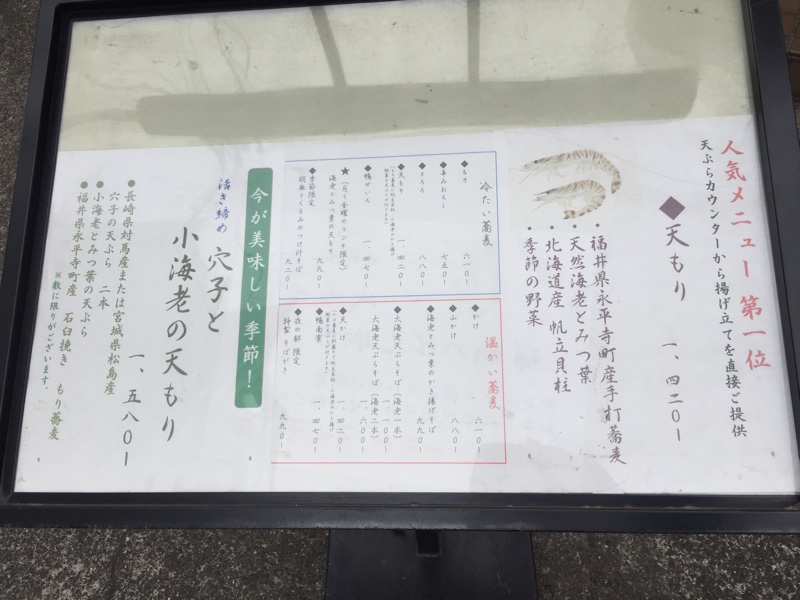 人気メニュー 第一位
天ぷらカウンターから揚げ立てを直接ご提供
◆天もり 一、四二〇ー
・福井県永平寺町産手打蕎麦
・天然海老とみつ葉
・北海道産 帆立貝柱
・季節の野菜
冷たい蕎麦
◆もり 六一〇ー
◆辛みおろし 七五〇ー
◆とろろ 八八〇ー
◆天もり 一、四二〇ー
◆鴨せいろ 一、四七〇ー
★(月~金曜のランチ限定)
海老とみつ葉の天もり 九九〇ー
◆季節限定
胡麻とくるみのつけ汁そば 九二〇ー
温かい蕎麦
◆かけ 六一〇ー
◆山かけ 八八〇ー
◆海老とみつ葉のかき揚げそば 九九〇ー
◆大海老天ぷらそば(海老一本) 一、一〇〇ー
大海老天ぷらそば(海老二本) 一、六〇〇ー
◆天かけ 一、四二〇ー
◆鴨南蛮 一、四七〇ー
◆夜の部 限定
特製 そばがき 九九〇ー
今が美味しい季節!
活き締め 穴子と
小海老の天もり
一、五八〇ー
●長崎県対馬産または宮城県松島産
穴子の天ぷら 二本
●小海老とみつ葉の天ぷら
●福井県永平寺町産 石臼挽き もり蕎麦
※数に限りがございます。